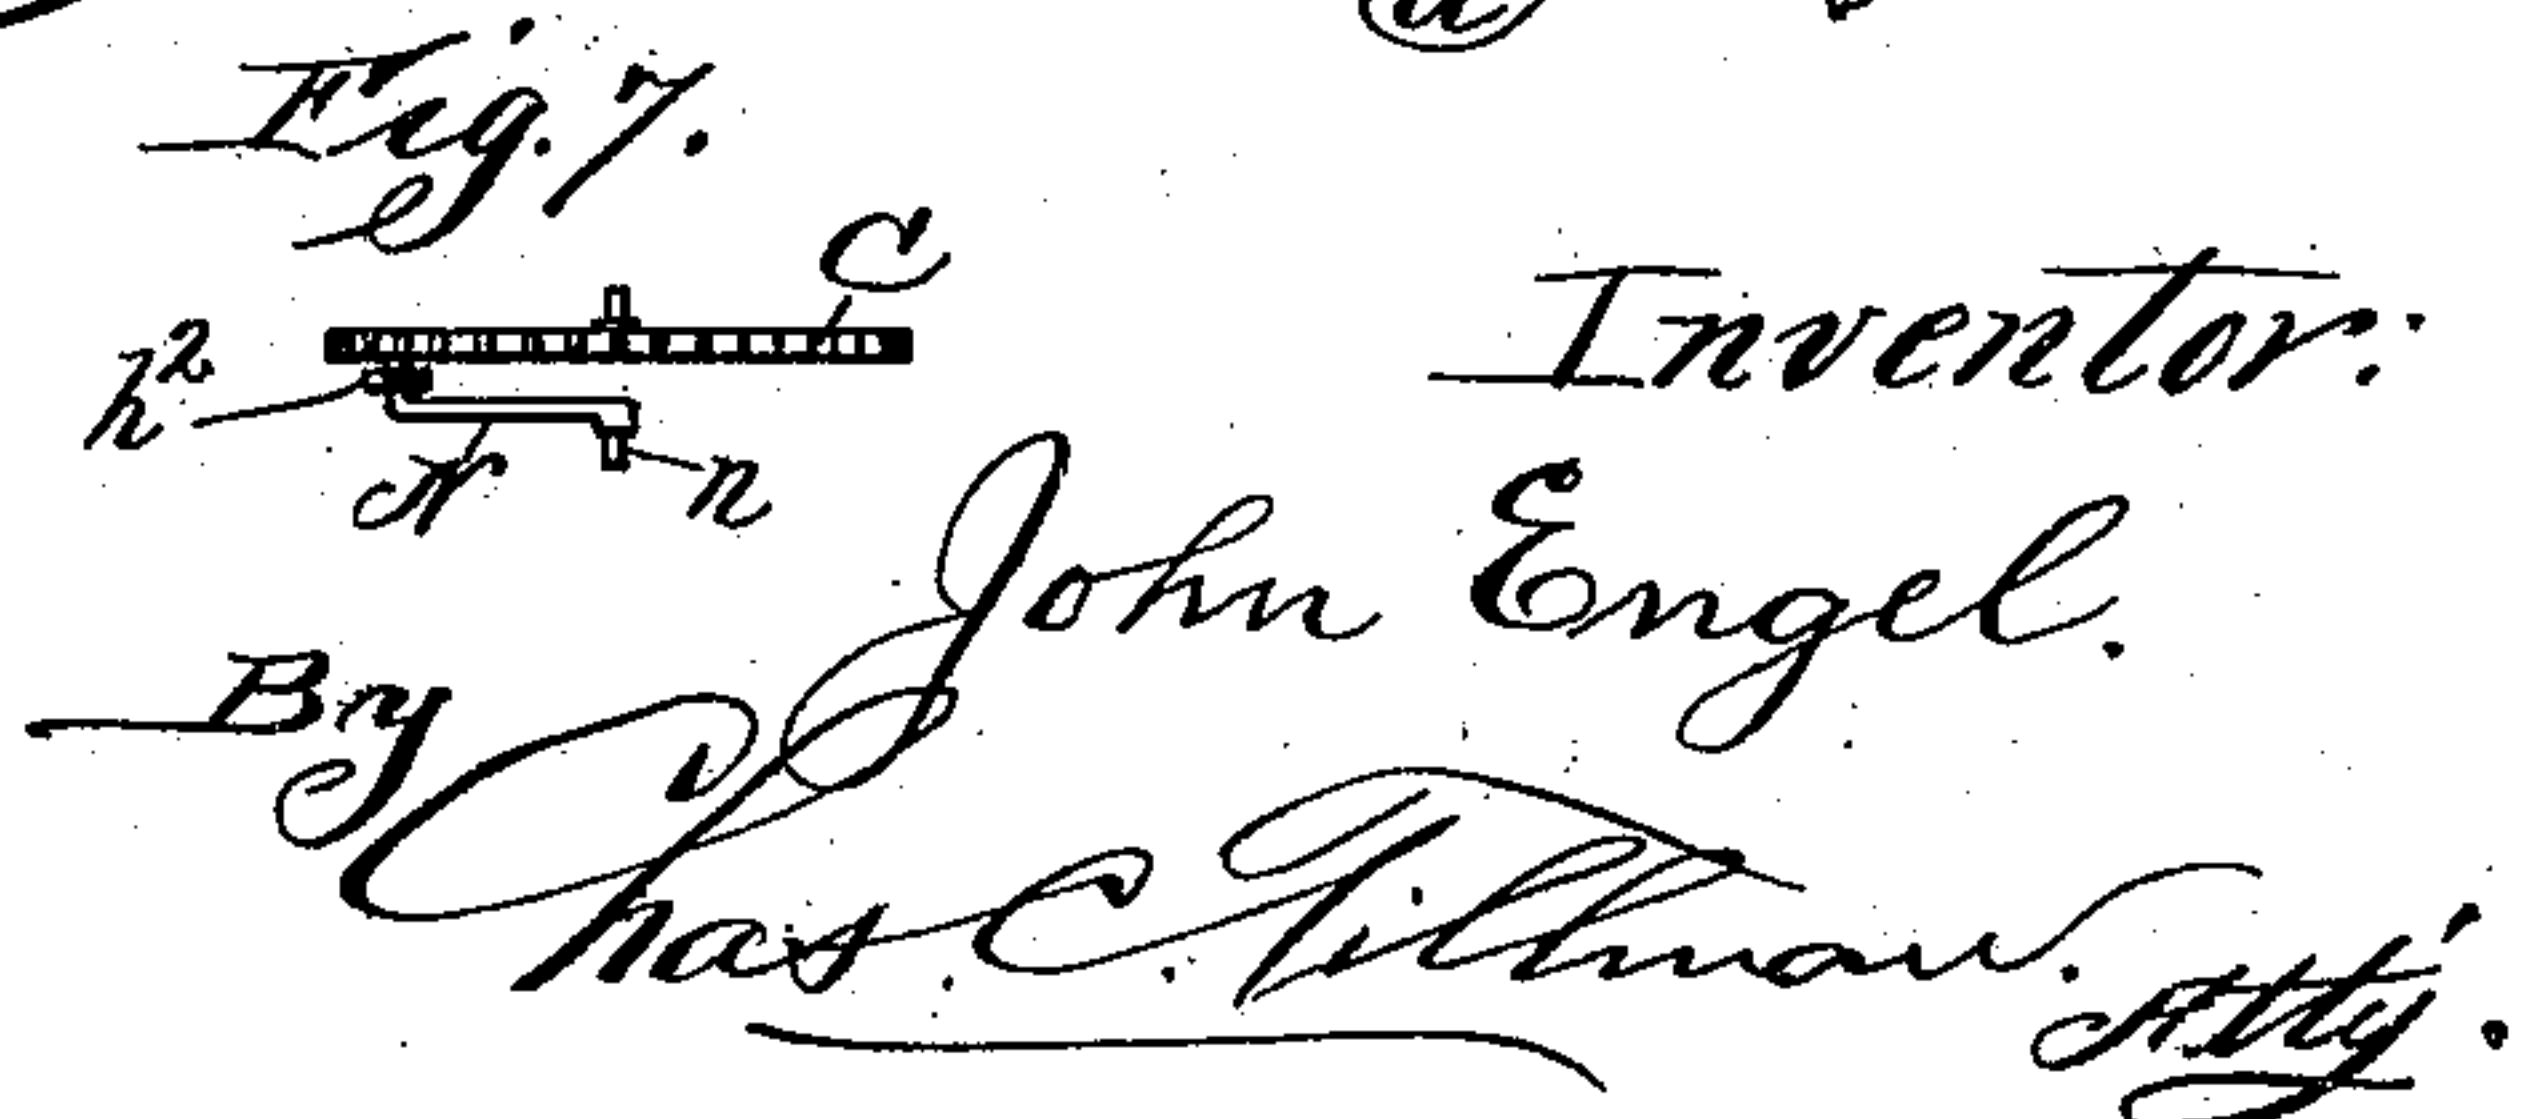 Fig. 7.
C
h²
N
n
Inventor:
John Engel.
By
Chas. C. Tillman.
Att'y.